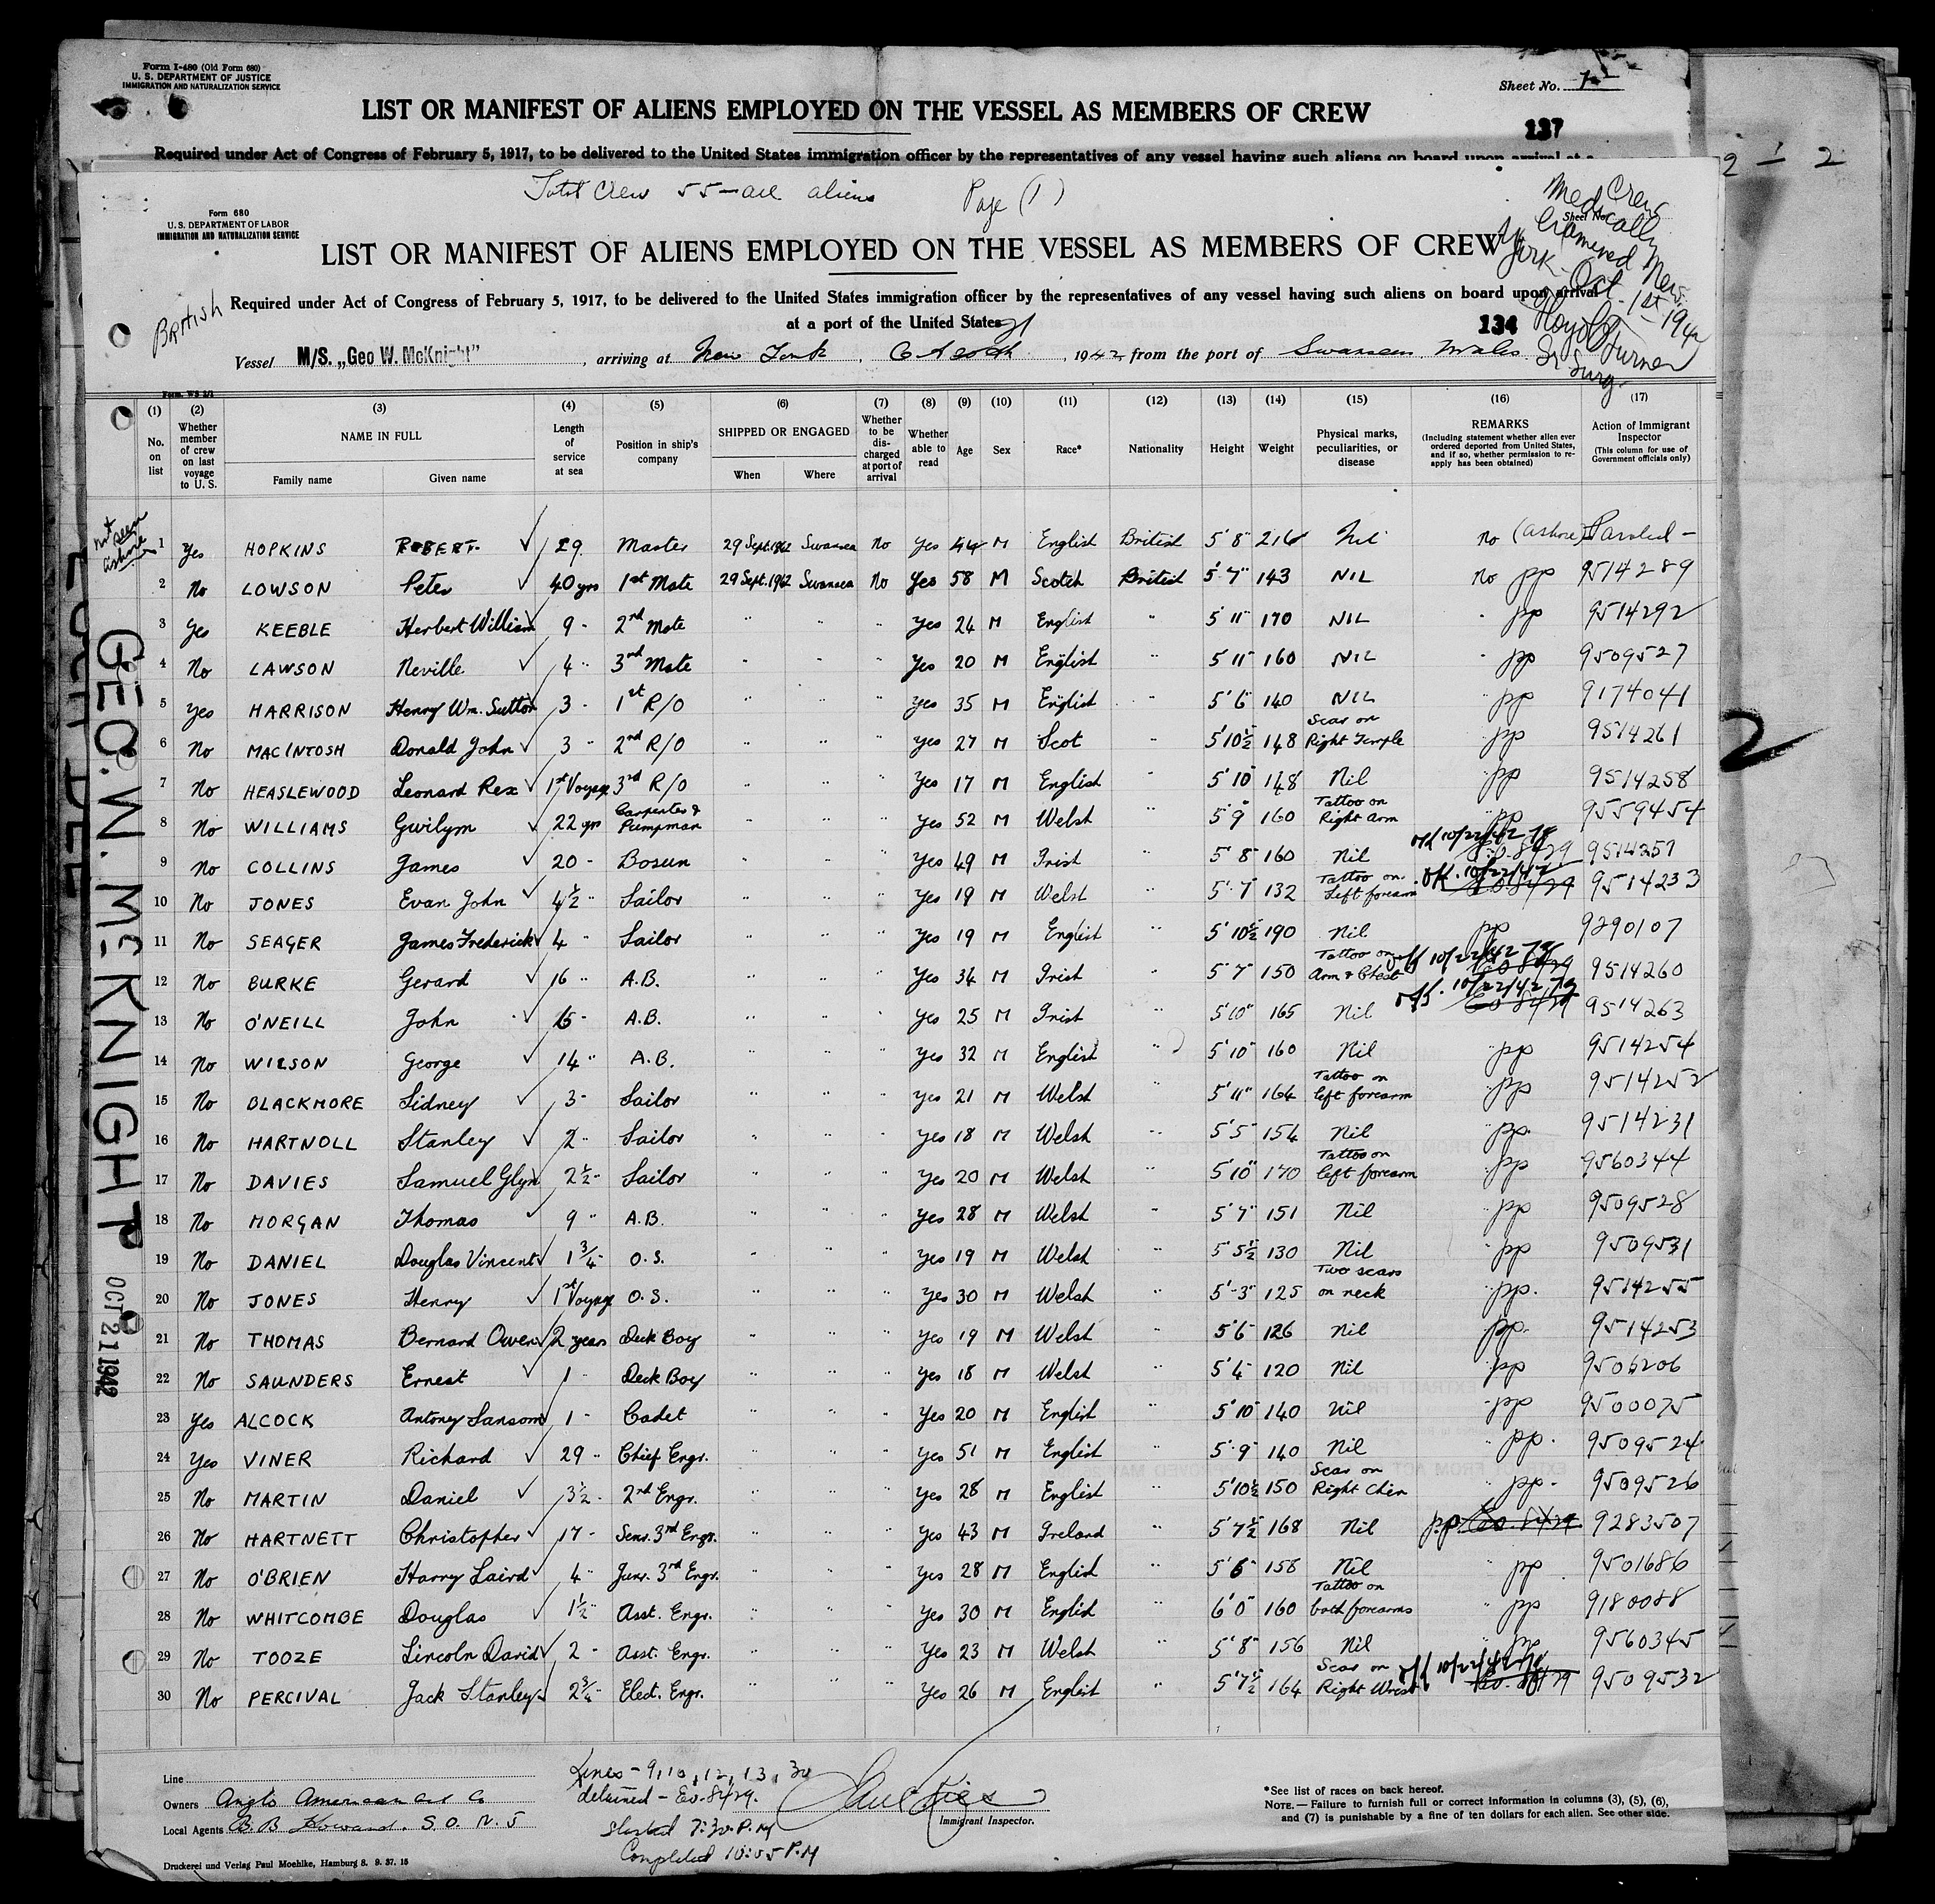 Form I-480 (Old Form 680)
U. S. DEPARTMENT OF JUSTICE
IMMIGRATION AND NATURALIZATION SERVICE
Sheet No.
LIST OR MANIFEST OF ALIENS EMPLOYED ON THE VESSEL AS MEMBERS OF CREW
137
Required under Act of Congress of February 5, 1917, to be delivered to the United States immigration officer by the representatives of any vessel having such aliens on board upon arrival at a
Total Crew 55 – all aliens Page (1)
Form 680
U.S. DEPARTMENT OF LABOR
IMMIGRATION AND NATURALIZATION SERVICE
Sheet No.
Crew Medically Examined New York - Oct. 1st - 1942
LIST OR MANIFEST OF ALIENS EMPLOYED ON THE VESSEL AS MEMBERS OF CREW
British
Required under Act of Congress of February 5, 1917, to be delivered to the United States immigration officer by the representatives of any vessel having such aliens on board upon arrival
at a port of the United States
134
Vessel M/S. „Geo W. McKnight" , arriving at New York , 1942 from the port of Swansea Wales
Form. WS 3/1
(1) (2) (3) (4) (5) (6) (7) (8) (9) (10) (11) (12) (13) (14) (15) (16) (17)
No. on list
Whether member of crew on last voyage to U. S.
NAME IN FULL
Family name Given name
Length of service at sea
Position in ship's company
SHIPPED OR ENGAGED
When Where
Whether to be discharged at port of arrival
Whether able to read
Age
Sex
Race*
Nationality
Height
Weight
Physical marks, peculiarities, or disease
REMARKS
(Including statement whether alien ever ordered deported from United States, and if so, whether permission to reapply has been obtained)
Action of Immigrant Inspector
(This column for use of Government officials only)
not seen ashore
1 Yes HOPKINS ROBERT 29 Master 29 Sept. 1942 Swansea No Yes 44 M English British 5'8" 216 Nil No (ashore) Paroled –
2 No LOWSON Peter 40 yrs 1st Mate 29 Sept. 1942 Swansea No Yes 58 M Scotch British 5'7" 143 NIL No pp 9514289
3 Yes KEEBLE Herbert William 9 - 2nd Mate " " " Yes 24 M English " 5'11" 170 NIL " pp 9514292
4 No LAWSON Neville 4 " 3rd Mate " " " Yes 20 M English " 5'11" 160 NIL " pp 9509527
5 Yes HARRISON Henry Wm. Sutton 3 - 1st R/O " " " Yes 35 M English " 5'6" 140 NIL " pp 9174041
6 No MACINTOSH Donald John 3 " 2nd R/O " " " Yes 27 M Scot " 5'10½ 148 Scar on Right Temple " pp 9514261
7 No HEASLEWOOD Leonard Rex 1st Voyage 3rd R/O " " " Yes 17 M English " 5'10" 148 Nil " pp 9514258
8 No WILLIAMS Gwilym 22 yrs Carpenter & Pumpman " " " Yes 52 M Welsh " 5'9" 160 Tattoo on Right Arm " pp 9559454
9 No COLLINS James 20 - Bosun " " " Yes 49 M Irish " 5'8" 160 Nil off 10/22/42 E.O. 8429 9514257
10 No JONES Evan John 4½ " Sailor " " " Yes 19 M Welsh " 5'7" 132 Tattoo on Left forearm off. 10/22/42 E.O. 8429 9514233
11 No SEAGER James Frederick 4 " Sailor " " " Yes 19 M English " 5'10½ 190 Nil pp 9290107
12 No BURKE Gerard 16 " A.B. " " " Yes 34 M Irish " 5'7" 150 Tattoo on Arm & Chest off 10/22/42 E.O. 8429 9514260
13 No O'NEILL John 15 - A.B. " " " Yes 25 M Irish " 5'10" 165 Nil off. 10/22/42 E.O. 8429 9514263
14 No WILSON George 14 " A.B. " " " Yes 32 M English " 5'10" 160 Nil " pp 9514254
15 No BLACKMORE Sidney 3 - Sailor " " " Yes 21 M Welsh " 5'11" 164 Tattoo on left forearm " pp 9514252
16 No HARTNOLL Stanley 2 " Sailor " " " Yes 18 M Welsh " 5'5" 154 Nil " pp. 9514231
17 No DAVIES Samuel Glyn 2½ - Sailor " " " Yes 20 M Welsh " 5'10" 170 Tattoo on left forearm " pp 9560344
18 No MORGAN Thomas 9 " A.B. " " " Yes 28 M Welsh " 5'7" 151 Nil " pp 9509528
19 No DANIEL Douglas Vincent 1¾ - O.S. " " " Yes 19 M Welsh " 5'5½ 130 Nil " pp 9509531
20 No JONES Henry 1st Voyage O.S. " " " Yes 30 M Welsh " 5'-3" 125 Two scars on neck " pp. 9514255
21 No THOMAS Bernard Owen 2 years Deck Boy " " " Yes 19 M Welsh " 5'6" 126 Nil " pp. 9514253
22 No SAUNDERS Ernest 1 Deck Boy " " " Yes 18 M Welsh " 5'4" 120 Nil " pp 9506206
23 Yes ALCOCK Antony Sansom 1 - Cadet " " " Yes 20 M English " 5'10" 140 Nil " pp 9500075
24 Yes VINER Richard 29 " Chief Engr. " " " Yes 51 M English " 5'9" 140 Nil " pp. 9509524
25 No MARTIN Daniel 3½ - 2nd Engr. " " " Yes 28 M English " 5'10½ 150 Scar on Right Chin " pp. 9509526
26 No HARTNETT Christopher 17 - Senr. 3rd Engr. " " " Yes 43 M Ireland " 5'7½ 168 Nil pp. E.O. 8429 9283507
27 No O'BRIEN Harry Laird 4 " Junr. 3rd Engr. " " " Yes 28 M English " 5'6" 158 Nil " pp 9501686
28 No WHITCOMBE Douglas 1½ " Asst. Engr. " " " Yes 30 M English " 6'0" 160 Tattoo on both forearms " pp 9180088
29 No TOOZE Lincoln David 2 - Asst. Engr. " " " Yes 23 M Welsh " 5'8" 156 Nil " pp 9560345
30 No PERCIVAL Jack Stanley 2¾ - Elect. Engr. " " " Yes 26 M English " 5'7½ 164 Scar on Right Wrist off 10/22/42 E.O. 8429 9509532
GEO. W. McKNIGHT
OCT 21 1942
Line
Owners Anglo American Oil Co
Local Agents B. B. Howard. S. O. N. J
Lines – 9, 10, 12, 13, 30
detained – E.O. 8429.
Started 7:30 P.M
Completed 10:05 P.M
Immigrant Inspector.
*See list of races on back hereof.
NOTE.—Failure to furnish full or correct information in columns (3), (5), (6),
and (7) is punishable by a fine of ten dollars for each alien. See other side.
Druckerei und Verlag Paul Moehlke, Hamburg 8. 9. 37. 15